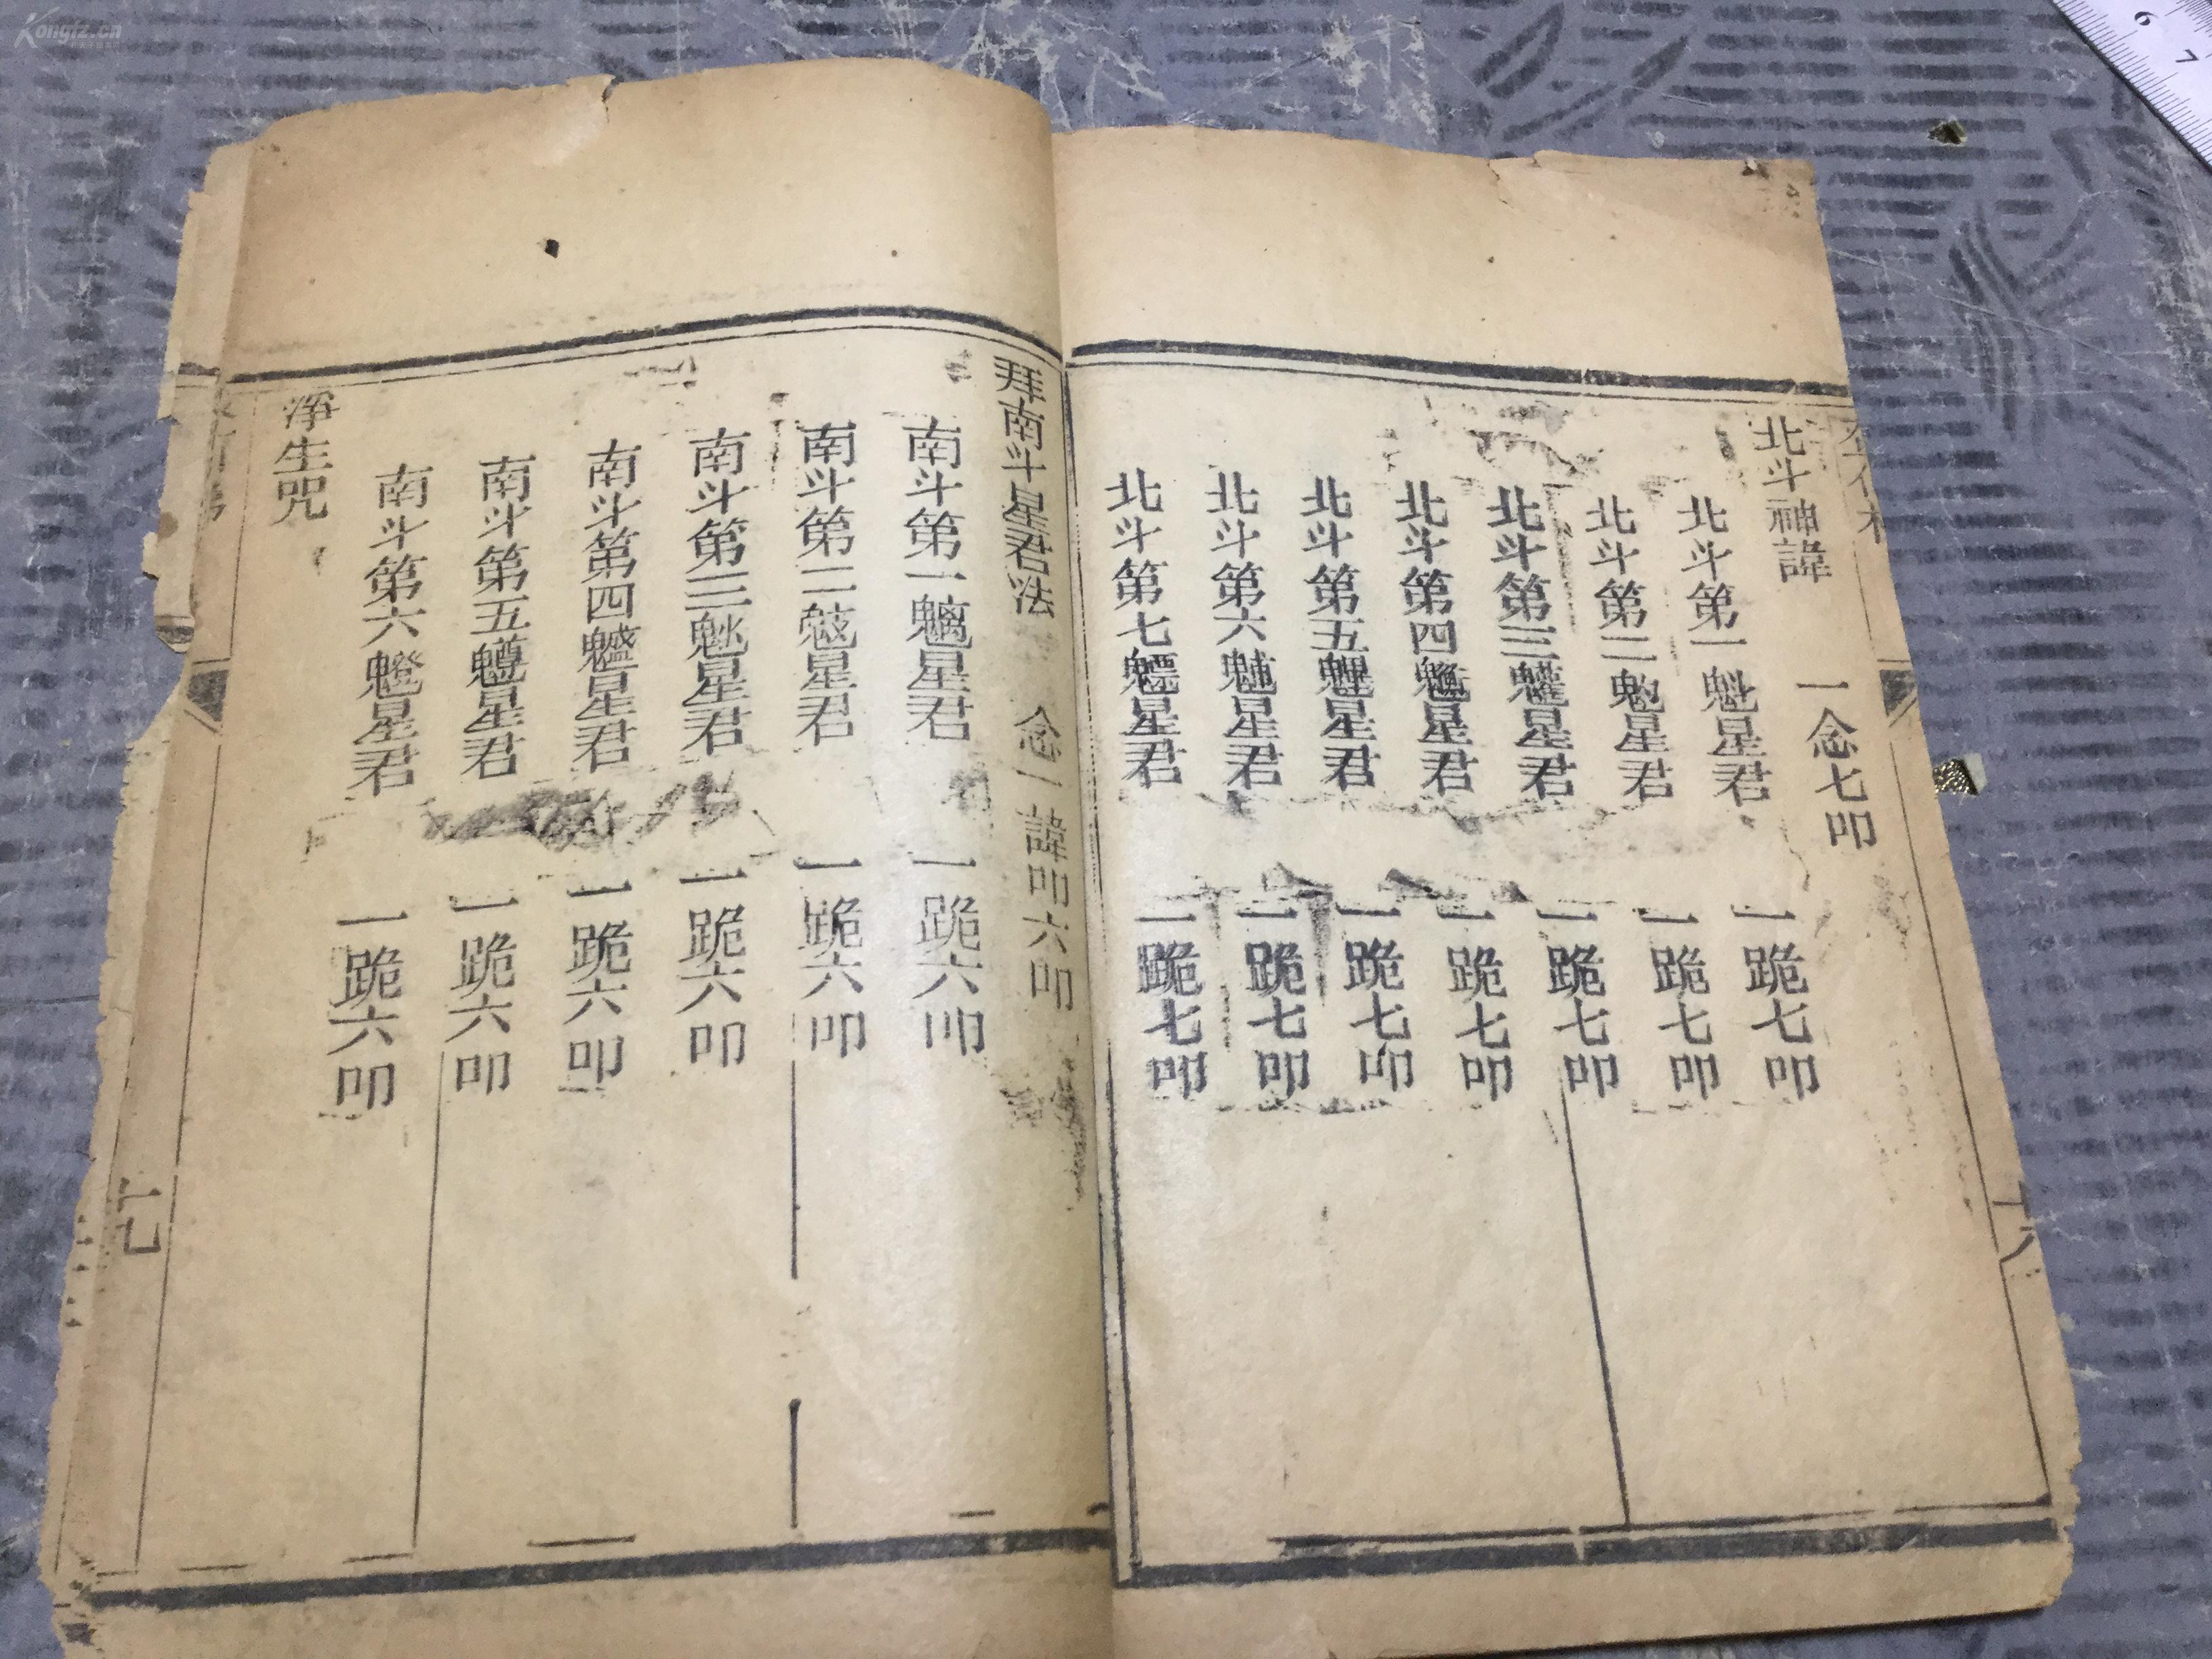 十六
北斗神諱 一念七叩
北斗第一魁星君 一跪七叩
北斗第二魡星君 一跪七叩
北斗第三星君 一跪七叩
北斗第四星君 一跪七叩
北斗第五星君 一跪七叩
北斗第六星君 一跪七叩
北斗第七魒星君 一跪七叩
拜南斗星君法 念一諱叩六叩
南斗第一魑星君 一跪六叩
南斗第二星君 一跪六叩
南斗第三星君 一跪六叩
南斗第四星君 一跪六叩
南斗第五星君 一跪六叩
南斗第六星君 一跪六叩
淨生咒
十七
Kongfz.cn